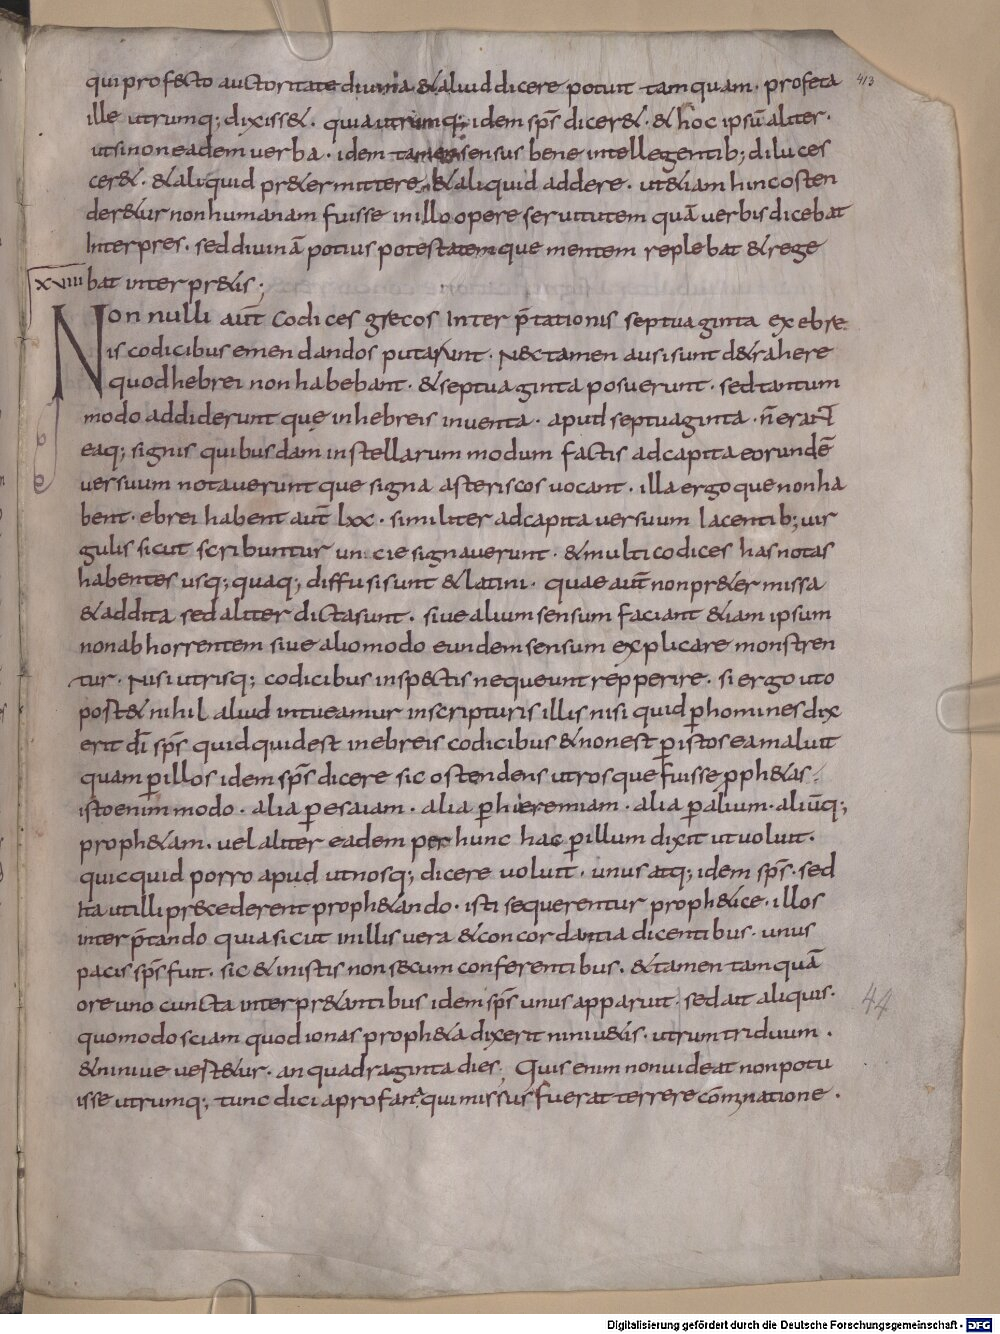 413
qui profecto auctoritate diuina & aliud dicere potuit tamquam · profeta
ille utrumq; dixiss& · quia utrumq; idem sp̄s dicer& · & hoc ipsū aliter ·
ut si non eadem uerba · idem tamen sensus bene intellegentib; diluces
cer& · & aliquid pr&ermittere & aliquid addere · ut &iam hinc osten
der&ur non humanam fuisse in illo opere seruitutem quā uerbis dicebat
Interpres · sed diuinā potius potestatem que mentem replebat & rege
xviiii bat interpr&is ;
Non nulli aut̄ codices grecos Inter p̄tationis septuaginta ex ebre
is codicibus emendandos putarunt · Nec tamen ausi sunt d&rahere
quod hebrei non habebant · & septuaginta posuerunt · sed tantum
modo addiderunt quę in hebreis inuenta · apud septuaginta · n̄ erant
eaq; signis quibusdam in stellarum modum factis ad capita eorundē
uersuum notauerunt que signa asteriscos uocant · illa ergo que non ha
bent · ebrei habent aut̄ lxx · similiter ad capita uersuum Iacentib; uir
gulis sicut scribuntur uncie signauerunt · & multi codices has notas
habentes usq; quaq; diffusi sunt & latini · quae aut̄ non pr&ermissa
& addita sed aliter dicta sunt · siue alium sensum faciant &iam ipsum
non abhorrentem siue alio modo eundem sensum explicare monstren
tur · Nisi utrisq; codicibus inspectis nequeunt repperire · si ergo uto
post& nihil aliud intueamur in scripturis illis nisi quid p̱ homines dix
erit dī sp̄s quidquid est in ebreis codicibus & non est p̱ istos ea maluit
quam p̱ illos idem sp̄s dicere sic ostendens utrosque fuisse p̱ph&as ·
isto enim modo · alia p̱ esaiam · alia p̱ hieremiam · alia p̱ alium · aliūq;
proph&am · uel aliter eadem per hunc hac p̱ illum dixit ut uoluit ·
quicquid porro apud utnosq; dicere uoluit · unus atq; idem sp̄s · sed
Ita ut illi precederent proph&ando · isti sequerentur proph&ice · illos
interp̄tando quia sicut in illis uera & concordantia dicentibus · unus
pacis sp̄s fuit · sic & in istis non secum conferentibus · & tamen tamquā
ore uno cuncta interpr&antibus idem sp̄s unus apparuit · sed ait aliquis ·
44
quomodo sciam quod ionas proph&a dixerit niniu&is · utrum triduum ·
& niniue uert&ur · an quadraginta dies ; Quis enim non uideat non potu
isse utrumq; tunc dici a profanta qui missus fuerat terrere com̄natione ·
Digitalisierung gefördert durch die Deutsche Forschungsgemeinschaft - DFG